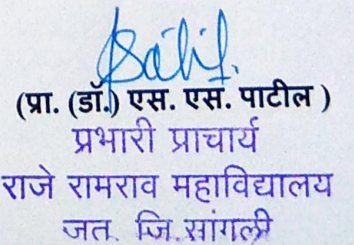 (प्रा. (डॉ.) एस. एस. पाटील )
प्रभारी प्राचार्य
राजे रामराव महाविद्यालय
जत. जि.सांगली